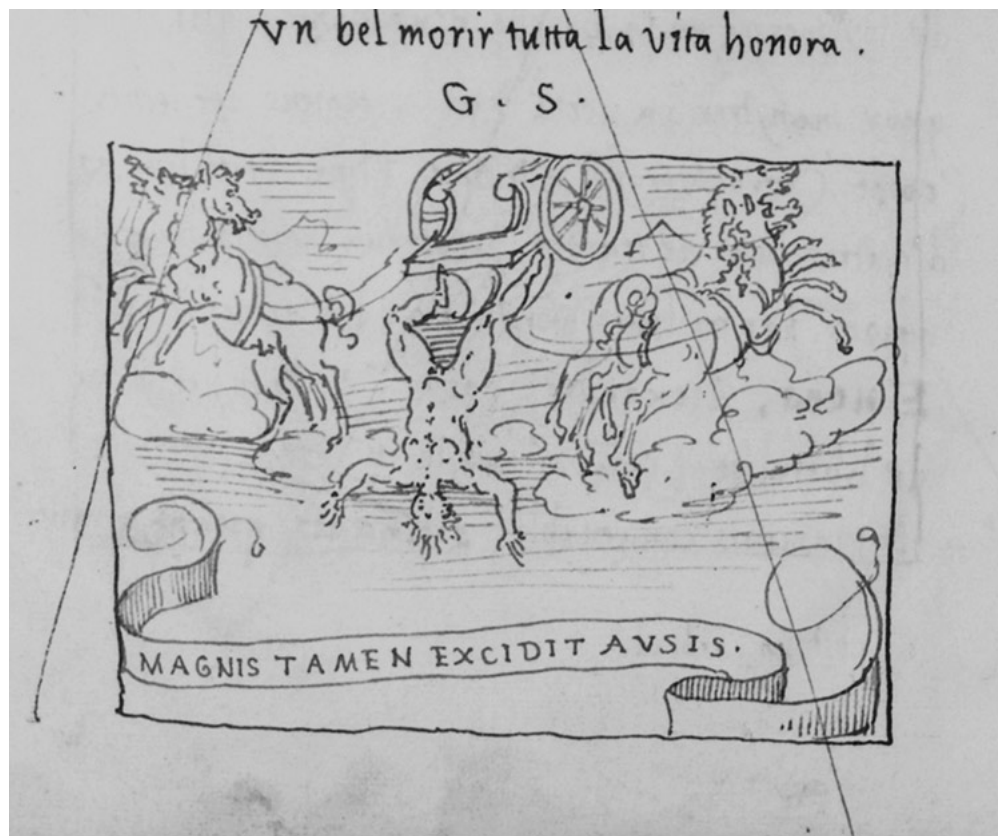 vn bel morir tutta la vita honora .
G . S .
MAGNIS TAMEN EXCIDIT AVSIS .